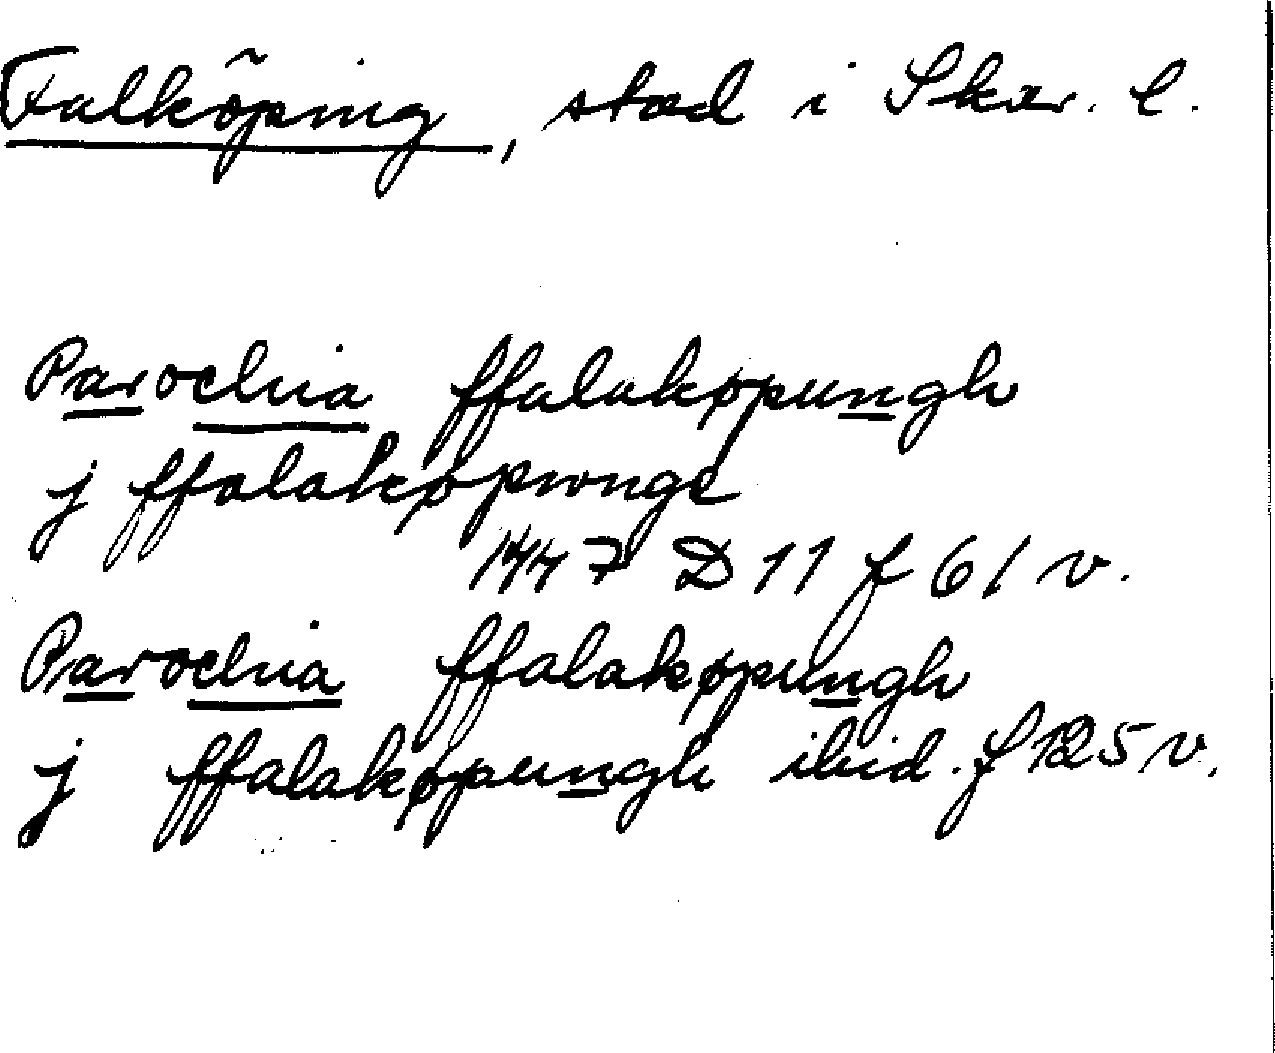 Falköping, stad i Skar. l.
Parochia ffalakøpungh
j ffalakøpwnge
1447 D 11 f 61 v.
Parochia ffalakøpungh
j ffalakøpungh ibid. f 125 v.